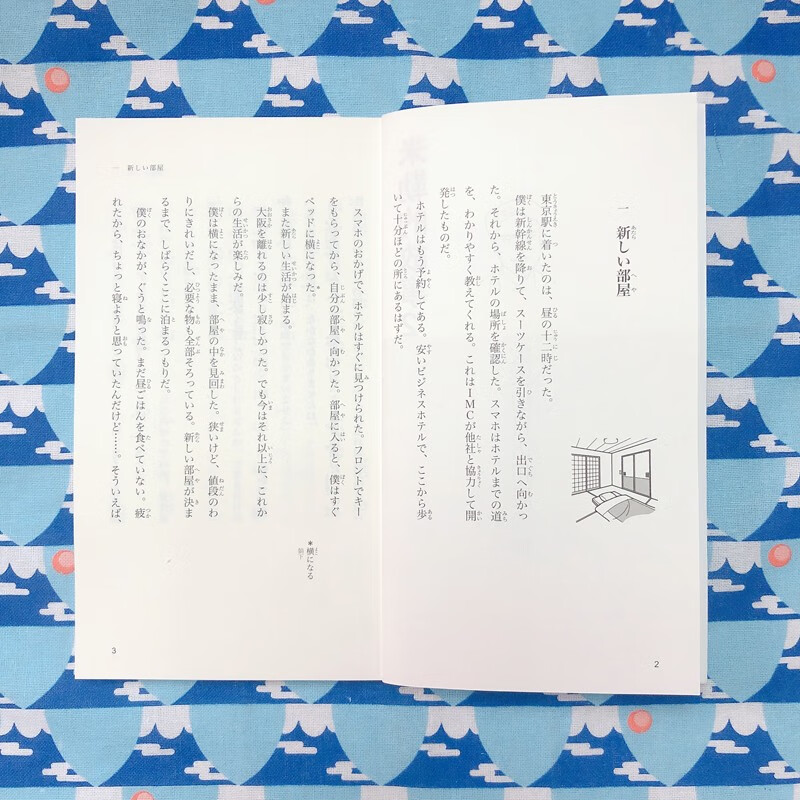 一 新しい部屋
東京駅に着いたのは、昼の十二時だった。
僕は新幹線を降りて、スーツケースを引きながら、出口へ向かっ
た。それから、ホテルの場所を確認した。スマホはホテルまでの道
を、わかりやすく教えてくれる。これはIMCが他社と協力して開
発したものだ。
ホテルはもう予約してある。安いビジネスホテルで、ここから歩
いて十分ほどの所にあるはずだ。
2
一 新しい部屋
スマホのおかげで、ホテルはすぐに見つけられた。フロントでキー
をもらってから、自分の部屋へ向かった。部屋に入ると、僕はすぐ
ベッドに横になった。
また新しい生活が始まる。
大阪を離れるのは少し寂しかった。でも今はそれ以上に、これか
らの生活が楽しみだ。
僕は横になったまま、部屋の中を見回した。狭いけど、値段のわ
りにきれいだし、必要な物も全部そろっている。新しい部屋が決ま
るまで、しばらくここに泊まるつもりだ。
僕のおなかが、ぐうと鳴った。まだ昼ごはんを食べていない。疲
れたから、ちょっと寝ようと思っていたんだけど……。そういえば、
*横になる
躺下
3